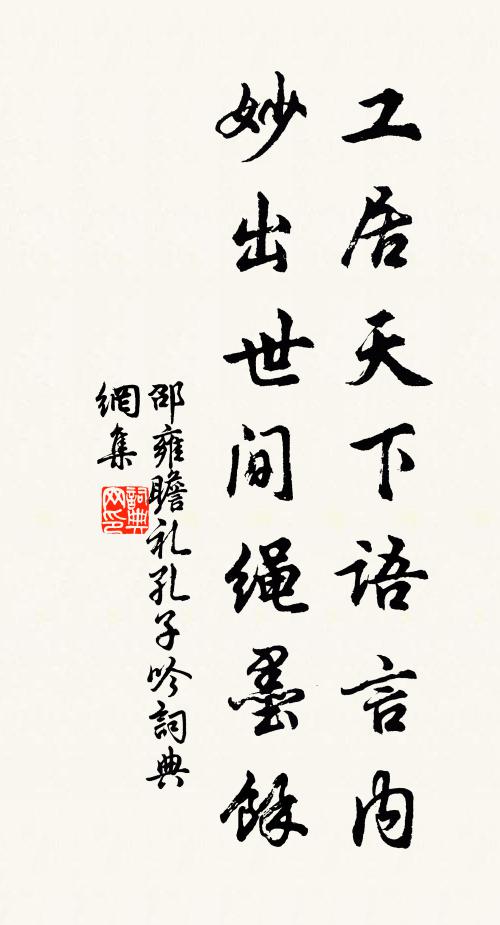 工居天下语言内
妙出世间绳墨馀
邵雍瞻礼孔子吟詞典
網集
詞典
网印